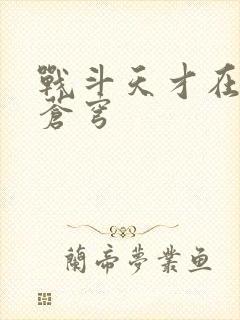 戰斗天才在
蒼穹
蘭帝夢業鱼